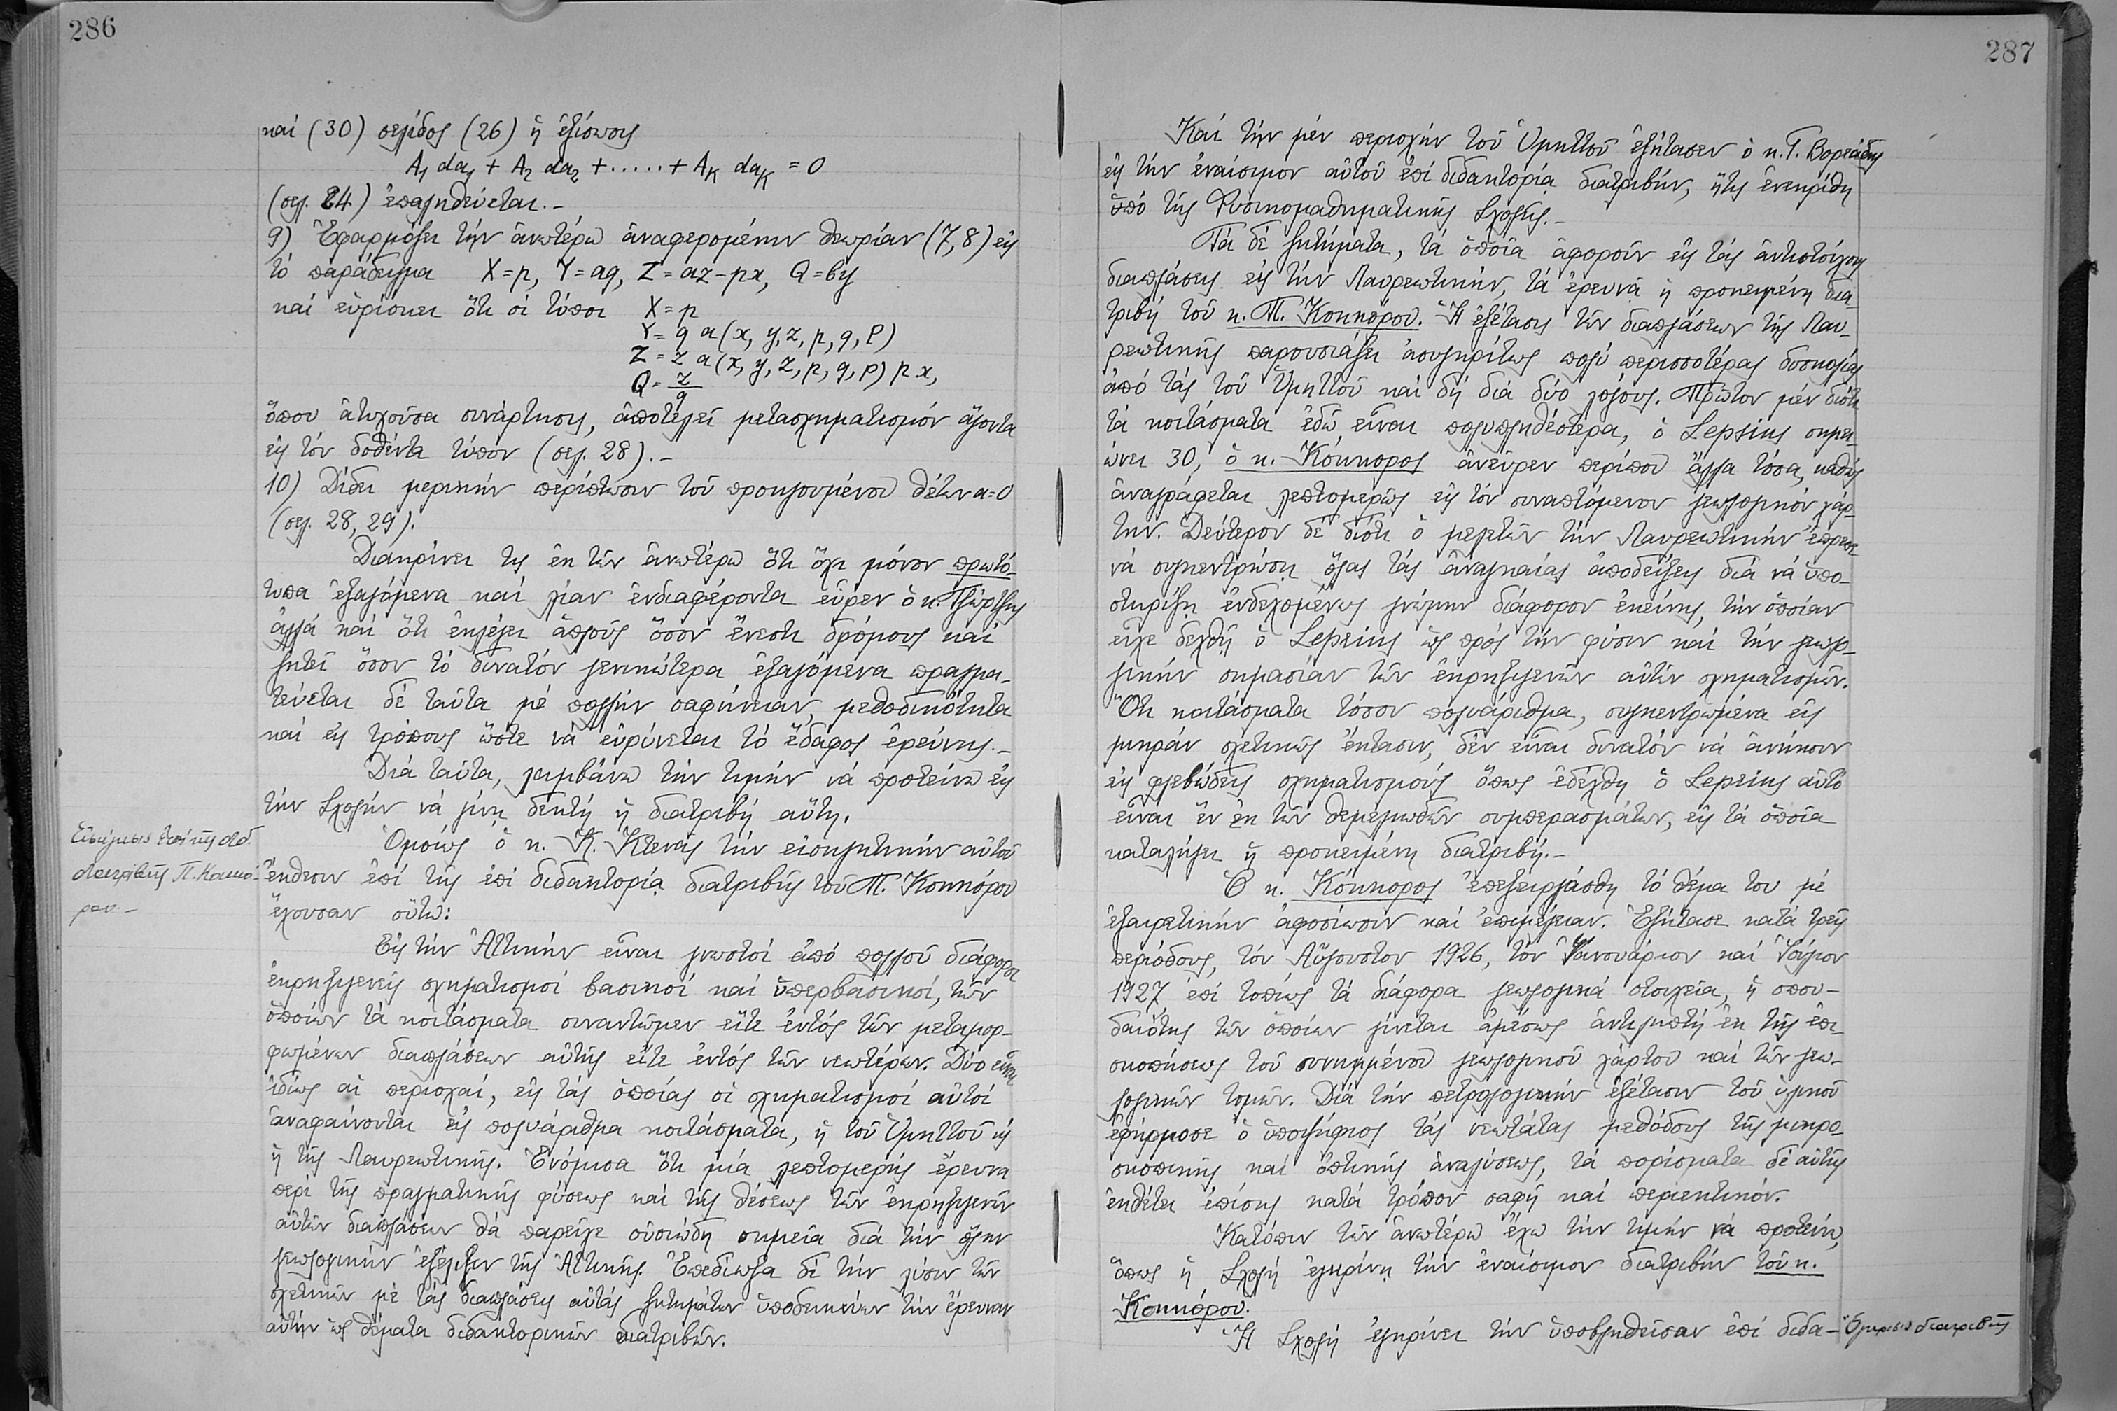 286
καί (30) σελίδος (26) ἡ ἐξίσωσις
A₁ da₁ + A₂ da₂ + ..... + Aκ daκ = 0
(σελ. 24) ἐπαληθεύεται.-
9) Ἐφαρμόζει τήν ἀνωτέρω ἀναφερομένην θεωρίαν (7,8) εἰς
τό παράδειγμα X=p, Y=aq, Z=az-px, Q=by
καί εὑρίσκει ὅτι οἱ τύποι X=p
Y= q a(x, y, z, p, q, P)
Z = z a(x, y, z, p, q, P) p x,
Q = z/q
ὅπου ἀτυχοῦσα συνάρτησις, ἀποτελεῖ μετασχηματισμόν ἄγοντα
εἰς τόν δοθέντα τύπον (σελ. 28).-
10) Δίδει μερικήν περίπτωσιν τοῦ προηγουμένου θέτων a=0
(σελ. 28, 29).
Διακρίνει τις ἐκ τῶν ἀνωτέρω ὅτι ὄχι μόνον πρωτό-
τυπα ἐξαγόμενα καί λίαν ἐνδιαφέροντα εὗρεν ὁ κ. Τζώρτζης
ἀλλά καί ὅτι ἐκλέγει ἁπλούς ὅσον ἔνεστι δρόμους καί
ζητεῖ ὅσον τό δυνατόν γενικώτερα ἐξαγόμενα πραγμα-
τεύεται δέ ταῦτα μέ πολλήν σαφήνειαν μεθοδικότητα
καί εἰς τρόπους ὥστε νά εὐρύνεται τό ἔδαφος ἐρεύνης.-
Διά ταῦτα, λαμβάνω τήν τιμήν νά προτείνω εἰς
τήν Σχολήν νά γίνῃ δεκτή ἡ διατριβή αὕτη.
Ὁμοίως ὁ κ. Κ. Κτενᾶς τήν εἰσηγητικήν αὐτοῦ
ἔκθεσιν ἐπί τῆς ἐπί διδακτορίᾳ διατριβῆς τοῦ Π. Κοκκόρου
ἔχουσαν οὕτω:
Εἰσήγησις ἐπί τῆς διδ.
διατριβῆς Π. Κοκκό-
ρου.-
Εἰς τήν Ἀττικήν εἶναι γνωστοί ἀπό πολλοῦ διάφοροι
ἐκρηξιγενεῖς σχηματισμοί βασικοί καί ὑπερβασικοί, τῶν
ὁποίων τά κοιτάσματα συναντῶμεν εἴτε ἐντός τῶν μεταμορ-
φωμένων διαπλάσεων αὐτῆς εἴτε ἐντός τῶν νεωτέρων. Δύο εἶναι
ἰδίως αἱ περιοχαί, εἰς τάς ὁποίας οἱ σχηματισμοί αὐτοί
ἀναφαίνονται εἰς πολυάριθμα κοιτάσματα, ἡ τοῦ Ὑμηττοῦ καί
ἡ τῆς Λαυρεωτικῆς. Ἐνόμισα ὅτι μία λεπτομερής ἔρευνα
περί τῆς πραγματικῆς φύσεως καί τῆς θέσεως τῶν ἐκρηξιγενῶν
αὐτῶν διαπλάσεων θά παρεῖχε οὐσιώδη σημεῖα διά τήν ὅλην
γεωλογικήν ἐξέλιξιν τῆς Ἀττικῆς. Ἐπεδίωξα δέ τήν λύσιν τῶν
σχετικῶν μέ τάς διαπλάσεις αὐτάς ζητημάτων ὑποδεικνύων τήν ἔρευναν
αὐτήν ὡς θέματα διδακτορικῶν διατριβῶν.
287
Καί τήν μέν περιοχήν τοῦ Ὑμηττοῦ ἐξήτασεν ὁ κ. Γ. Βορεάδης
εἰς τήν ἐναίσιμον αὐτοῦ ἐπί διδακτορίᾳ διατριβήν, ἥτις ἐνεκρίθη
ὑπό τῆς Φυσικομαθηματικῆς Σχολῆς.-
Τά δέ ζητήματα, τά ὁποῖα ἀφοροῦν εἰς τάς ἀντιστοίχους
διαπλάσεις εἰς τήν Λαυρεωτικήν, τά ἐρευνᾷ ἡ προκειμένη δια-
τριβή τοῦ κ. Π. Κοκκόρου. Ἡ ἐξέτασις τῶν διαπλάσεων τῆς Λαυ-
ρεωτικῆς παρουσιάζει ἀσυγκρίτως πολύ περισσοτέρας δυσκολίας
ἀπό τάς τοῦ Ὑμηττοῦ καί δή διά δύο λόγους. Πρῶτον μέν διότι
τά κοιτάσματα ἐδῶ εἶναι πολυπληθέστερα, ὁ Lepsius σημει-
ώνει 30, ὁ κ. Κόκκορος ἀνεῦρεν περίπου ἄλλα τόσα, καθώς
ἀναγράφεται λεπτομερῶς εἰς τόν συναπτόμενον γεωλογικόν χάρ-
την. Δεύτερον δέ διότι ὁ μελετῶν τήν Λαυρεωτικήν ἔπρεπε
νά συγκεντρώσῃ ὅλας τάς ἀναγκαίας ἀποδείξεις διά νά ὑπο-
στηρίξῃ ἐνδεχομένως γνώμην διάφορον ἐκείνης, τήν ὁποίαν
εἶχε δεχθῆ ὁ Lepsius ὡς πρός τήν φύσιν καί τήν γεωλο-
γικήν σημασίαν τῶν ἐκρηξιγενῶν αὐτῶν σχηματισμῶν.
Ὅτι κοιτάσματα τόσον πολυάριθμα, συγκεντρωμένα εἰς
μικράν σχετικῶς ἔκτασιν, δέν εἶναι δυνατόν νά ἀνήκουν
εἰς φλεβώδεις σχηματισμούς ὅπως ἐδέχθη ὁ Lepsius αὐτό
εἶναι ἕν ἐκ τῶν θεμελιωδῶν συμπερασμάτων, εἰς τά ὁποῖα
καταλήγει ἡ προκειμένη διατριβή.-
Ὁ κ. Κόκκορος ἐπεξειργάσθη τό θέμα του μέ
ἐξαιρετικήν ἀφοσίωσιν καί ἐπιμέλειαν. Ἐξήτασε κατά τρεῖς
περιόδους, τόν Αὔγουστον 1926, τόν Ἰανουάριον καί Ἰούλιον
1927 ἐπί τοπίως τά διάφορα γεωλογικά στοιχεῖα, ἡ σπου-
δαιότης τῶν ὁποίων γίνεται ἀμέσως ἀντιληπτή ἐκ τῆς ἐπι-
σκοπήσεως τοῦ συνημμένου γεωλογικοῦ χάρτου καί τῶν γεω-
λογικῶν τομῶν. Διά τήν πετρολογικήν ἐξέτασιν τοῦ ὑλικοῦ
ἐφήρμοσε ὁ ὑποψήφιος τάς νεωτάτας μεθόδους τῆς μικρο-
σκοπικῆς καί ὀπτικῆς ἀναλύσεως, τά πορίσματα δέ αὐτῆς
ἐκθέτει ἐπίσης κατά τρόπον σαφῆ καί περιεκτικόν.
Κατόπιν τῶν ἀνωτέρω ἔχω τήν τιμήν νά προτείνω,
ὅπως ἡ Σχολή ἐγκρίνῃ τήν ἐναίσιμον διατριβήν τοῦ κ.
Κοκκόρου.
Ἡ Σχολή ἐγκρίνει τήν ὑποβληθεῖσαν ἐπί διδα-
Ἔγκρισις διατριβῆς